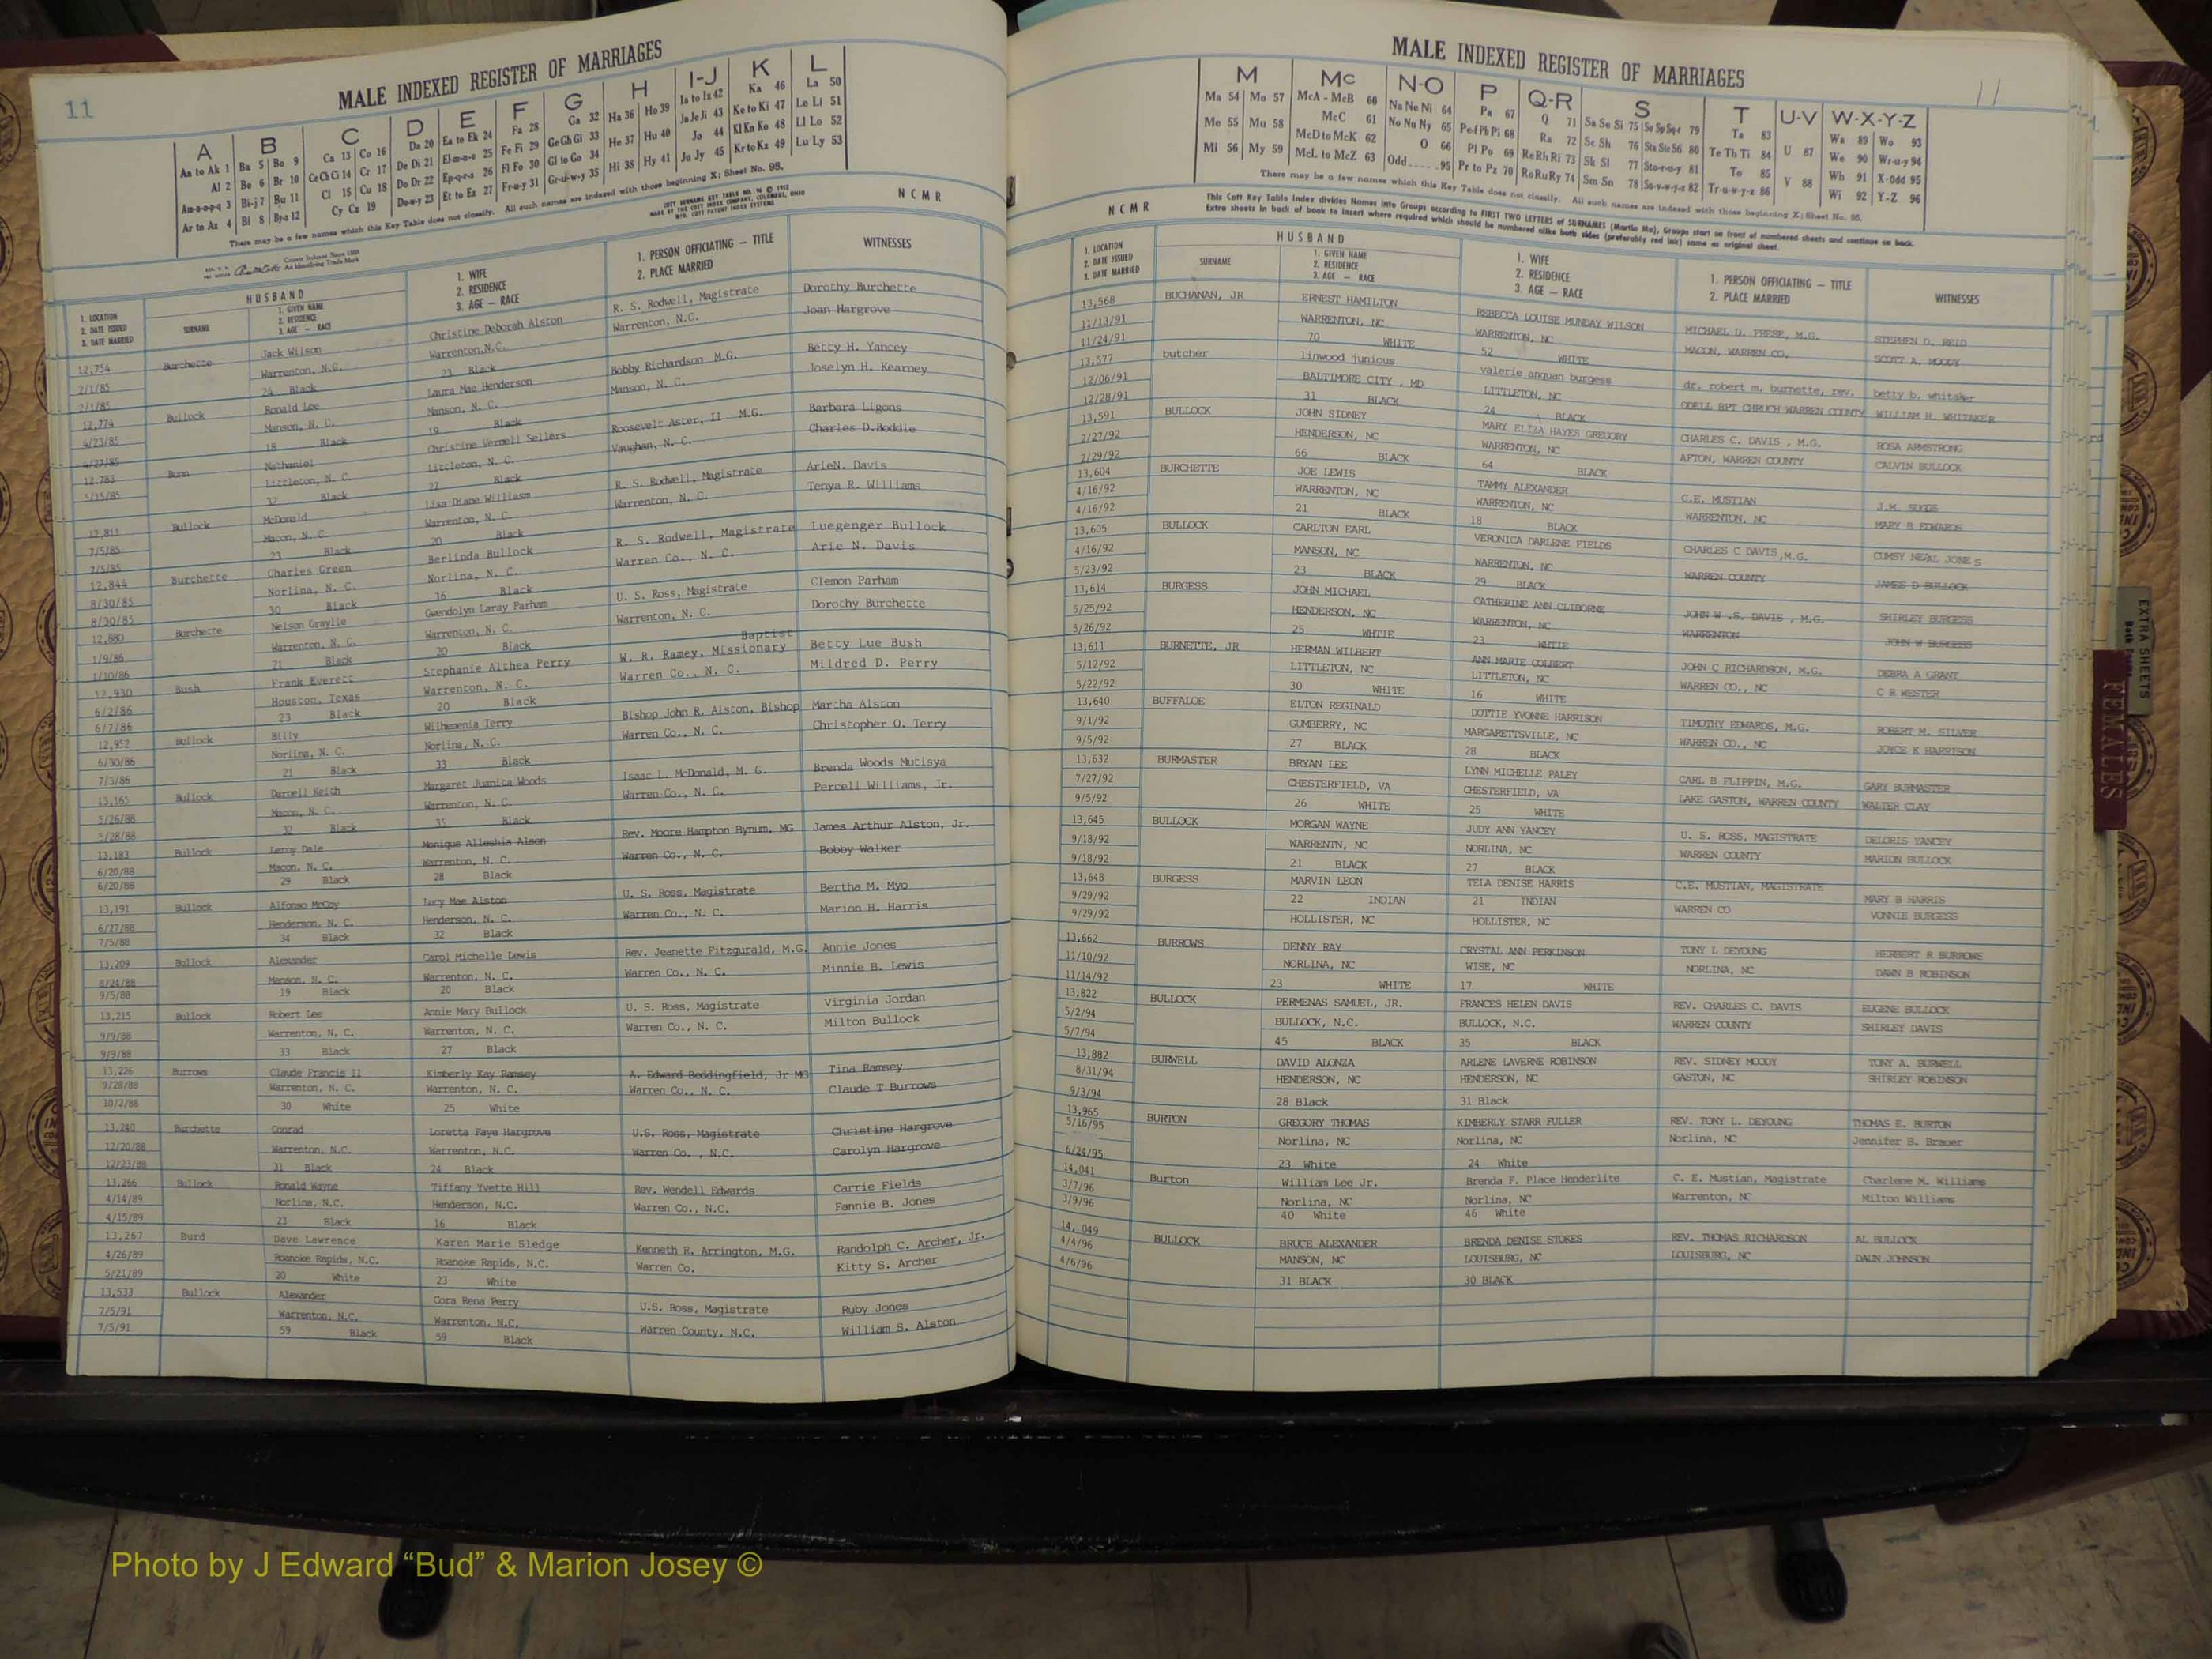 11
MALE INDEXED REGISTER OF MARRIAGES
A B C D E F G H I-J K L
Aa to Ak 1 Ba 5 Bo 9 Ca 13 Co 16 Da 20 Ea to Ek 24 Fa 28 Ga 32 Ha 36 Ho 39 Ia to Iz 42 Ka 46 La 50
Al 2 Be 6 Br 10 Ce Ch Ci 14 Cr 17 De Di 21 El-m-n-o 25 Fe Fi 29 Ge Gh Gi 33 He 37 Hu 40 Ja Je Ji 43 Ke to Ki 47 Le Li 51
Am-n-o-p-q 3 Bi-j 7 Bu 11 Cl 15 Cu 18 Do Dr 22 Ep-q-r-s 26 Fl Fo 30 Gl to Go 34 Hi 38 Hy 41 Jo 44 Kl Kn Ko 48 Ll Lo 52
Ar to Az 4 Bl 8 By-z 12 Cy Cz 19 Du-w-y 23 Et to Ez 27 Fr-u-y 31 Gr-u-w-y 35 Ju Jy 45 Kr to Kz 49 Lu Ly 53
There may be a few names which this Key Table does not classify. All such names are indexed with those beginning X; Sheet No. 95.
NCMR
HUSBAND
1. LOCATION 2. DATE ISSUED 3. DATE MARRIED
SURNAME
1. GIVEN NAME 2. RESIDENCE 3. AGE — RACE
1. WIFE 2. RESIDENCE 3. AGE — RACE
1. PERSON OFFICIATING — TITLE 2. PLACE MARRIED
WITNESSES
12,754 Burchette Jack Wilson Christine Deborah Alston R. S. Rodwell, Magistrate Dorothy Burchette
2/1/85 Warrenton, N.C. Warrenton,N.C. Warrenton, N.C. Joan Hargrove
2/1/85 24 Black 23 Black
12,774 Bullock Ronald Lee Laura Mae Henderson Bobby Richardson M.G. Betty H. Yancey
4/23/85 Manson, N. C. Manson, N. C. Manson, N. C. Joselyn H. Kearney
4/27/85 18 Black 19 Black
12,783 Bunn Nathaniel Christine Vernell Sellers Roosevelt Aster, II M.G. Barbara Ligons
5/15/85 Littleton, N. C. Littleton, N. C. Vaughan, N. C. Charles D.Boddie
32 Black 27 Black
12,811 Bullock McDonald Lisa Diane Williasm R. S. Rodwell, Magistrate ArieN. Davis
7/5/85 Macon, N. C. Warrenton, N. C. Warrenton, N. C. Tenya R. Williams
7/5/85 23 Black 20 Black
12,844 Burchette Charles Green Berlinda Bullock R. S. Rodwell, Magistrate Luegenger Bullock
8/30/85 Norlina, N. C. Norlina, N. C. Warren Co., N. C. Arie N. Davis
8/30/85 30 Black 16 Black
12,880 Burchette Nelson Graylie Gwendolyn Laray Parham U. S. Ross, Magistrate Clemon Parham
1/9/86 Warrenton, N. C. Warrenton, N. C. Warrenton, N. C. Dorothy Burchette
1/10/86 21 Black 20 Black
Baptist
12,930 Bush Frank Everett Stephanie Althea Perry W. R. Ramey, Missionary Betty Lue Bush
6/2/86 Houston, Texas Warrenton, N. C. Warren Co., N. C. Mildred D. Perry
6/7/86 23 Black 20 Black
12,952 Bullock Billy Wilhemenia Terry Bishop John R. Alston, Bishop Martha Alston
6/30/86 Norlina, N. C. Norlina, N. C. Warren Co., N. C. Christopher O. Terry
7/3/86 21 Black 33 Black
13,165 Bullock Darnell Keith Margaret Juanita Woods Isaac L. McDonald, M. G. Brenda Woods Mutisya
5/26/88 Macon, N. C. Warrenton, N. C. Warren Co., N. C. Percell Williams, Jr.
5/28/88 32 Black 35 Black
13,183 Bullock Leroy Dale Monique Alleshia Alson Rev. Moore Hampton Bynum, MG James Arthur Alston, Jr.
6/20/88 Macon, N. C. Warrenton, N. C. Warren Co., N. C. Bobby Walker
6/20/88 29 Black 28 Black
13,191 Bullock Alfonso McCoy Lucy Mae Alston U. S. Ross, Magistrate Bertha M. Myo
6/27/88 Henderson, N. C. Henderson, N. C. Warren Co., N. C. Marion H. Harris
7/5/88 34 Black 32 Black
13,209 Bullock Alexander Carol Michelle Lewis Rev. Jeanette Fitzgurald, M.G. Annie Jones
8/24/88 Manson, N. C. Warrenton, N. C. Warren Co., N. C. Minnie B. Lewis
9/5/88 19 Black 20 Black
13,215 Bullock Robert Lee Annie Mary Bullock U. S. Ross, Magistrate Virginia Jordan
9/9/88 Warrenton, N. C. Warrenton, N. C. Warren Co., N. C. Milton Bullock
9/9/88 33 Black 27 Black
13,226 Burrows Claude Francis II Kimberly Kay Ramsey A. Edward Boddingfield, Jr MG Tina Ramsey
9/28/88 Warrenton, N. C. Warrenton, N. C. Warren Co., N. C. Claude T Burrows
10/2/88 30 White 25 White
13,240 Burchette Conrad Loretta Faye Hargrove U.S. Ross, Magistrate Christine Hargrove
12/20/88 Warrenton, N.C. Warrenton, N.C. Warren Co. , N.C. Carolyn Hargrove
12/23/88 31 Black 24 Black
13,266 Bullock Ronald Wayne Tiffany Yvette Hill Rev. Wendell Edwards Carrie Fields
4/14/89 Norlina, N.C. Henderson, N.C. Warren Co., N.C. Fannie B. Jones
4/15/89 23 Black 16 Black
13,267 Burd Dave Lawrence Karen Marie Sledge Kenneth R. Arrington, M.G. Randolph C. Archer, Jr.
4/26/89 Roanoke Rapids, N.C. Roanoke Rapids, N.C. Warren Co. Kitty S. Archer
5/21/89 20 White 23 White
13,533 Bullock Alexander Cora Rena Perry U.S. Ross, Magistrate Ruby Jones
7/5/91 Warrenton, N.C. Warrenton, N.C. Warren County, N.C. William S. Alston
7/5/91 59 Black 59 Black
MALE INDEXED REGISTER OF MARRIAGES
11
M Mc N-O P Q-R S T U-V W-X-Y-Z
Ma 54 Mo 57 McA - McB 60 Na Ne Ni 64 Pa 67 Q 71 Sa Se Si 75 So Sp Sq-r 79 Ta 83 U 87 Wa 89 Wo 93
Me 55 Mu 58 McC 61 No Nu Ny 65 Pe-f Ph Pi 68 Ra 72 Sc Sh 76 Sta Ste Sti 80 Te Th Ti 84 V 88 We 90 Wr-u-y 94
Mi 56 My 59 McD to McK 62 O 66 Pl Po 69 Re Rh Ri 73 Sk Sl 77 Sto-r-u-y 81 To 85 Wh 91 X-Odd 95
McL to McZ 63 Odd.....95 Pr to Pz 70 Ro Ru Ry 74 Sm Sn 78 Su-v-w-y-z 82 Tr-u-w-y-z 86 Wi 92 Y-Z 96
There may be a few names which this Key Table does not classify. All such names are indexed with those beginning X; Sheet No. 95.
This Cott Key Table Index divides Names into Groups according to FIRST TWO LETTERS of SURNAMES (Martin Ma), Groups start on front of numbered sheets and continue on back.
Extra sheets in back of book to insert where required which should be numbered alike both sides (preferably red ink) same as original sheet.
NCMR
HUSBAND
1. LOCATION 2. DATE ISSUED 3. DATE MARRIED
SURNAME
1. GIVEN NAME 2. RESIDENCE 3. AGE — RACE
1. WIFE 2. RESIDENCE 3. AGE — RACE
1. PERSON OFFICIATING — TITLE 2. PLACE MARRIED
WITNESSES
13,568 BUCHANAN, JR ERNEST HAMILTON REBECCA LOUISE MUNDAY WILSON MICHAEL D. FRESE, M.G. STEPHEN D. REID
11/13/91 WARRENTON, NC WARRENTON, NC MACON, WARREN CO. SCOTT A. MOODY
11/24/91 70 WHITE 52 WHITE
13,577 butcher linwood junious valerie anquan burgess dr. robert m. burnette, rev. betty b. whitaker
12/06/91 BALTIMORE CITY , MD LITTLETON, NC ODELL BPT CHRUCH WARREN COUNTY WILLIAM H. WHITAKER
12/28/91 31 BLACK 24 BLACK
13,591 BULLOCK JOHN SIDNEY MARY ELIZA HAYES GREGORY CHARLES C. DAVIS , M.G. ROSA ARMSTRONG
2/27/92 HENDERSON, NC WARRENTON, NC AFTON, WARREN COUNTY CALVIN BULLOCK
2/29/92 66 BLACK 64 BLACK
13,604 BURCHETTE JOE LEWIS TAMMY ALEXANDER C.E. MUSTIAN J.M.
4/16/92 WARRENTON, NC WARRENTON, NC WARRENTON, NC MARY B EDWARDS
4/16/92 21 BLACK 18 BLACK
13,605 BULLOCK CARLTON EARL VERONICA DARLENE FIELDS CHARLES C DAVIS ,M.G. CUMSY NEAL JONES
4/16/92 MANSON, NC WARRENTON, NC WARREN COUNTY JAMES D BULLOCK
5/23/92 23 BLACK 29 BLACK
13,614 BURGESS JOHN MICHAEL CATHERINE ANN CLIBORNE JOHN W .S. DAVIS , M.G. SHIRLEY BURGESS
5/25/92 HENDERSON, NC WARRENTON, NC WARRENTON JOHN W BURGESS
5/26/92 25 WHTIE 23 WHTIE
13,611 BURNETTE, JR HERMAN WILBERT ANN MARIE COLBERT JOHN C RICHARDSON, M.G. DEBRA A GRANT
5/12/92 LITTLETON, NC LITTLETON, NC WARREN CO., NC C R WESTER
5/22/92 30 WHITE 16 WHITE
13,640 BUFFALOE ELTON REGINALD DOTTIE YVONNE HARRISON TIMOTHY EDWARDS, M.G. ROBERT M. SILVER
9/1/92 GUMBERRY, NC MARGARETTSVILLE, NC WARREN CO., NC JOYCE K HARRISON
9/5/92 27 BLACK 28 BLACK
13,632 BURMASTER BRYAN LEE LYNN MICHELLE PALEY CARL B FLIPPIN, M.G. GARY BURMASTER
7/27/92 CHESTERFIELD, VA CHESTERFIELD, VA LAKE GASTON, WARREN COUNTY WALTER CLAY
9/5/92 26 WHITE 25 WHITE
13,645 BULLOCK MORGAN WAYNE JUDY ANN YANCEY U. S. ROSS, MAGISTRATE DELORIS YANCEY
9/18/92 WARRENTN, NC NORLINA, NC WARREN COUNTY MARION BULLOCK
9/18/92 21 BLACK 27 BLACK
13,648 BURGESS MARVIN LEON TELA DENISE HARRIS C.E. MUSTIAN, MAGISTRATE MARY B HARRIS
9/29/92 22 INDIAN 21 INDIAN WARREN CO VONNIE BURGESS
9/29/92 HOLLISTER, NC HOLLISTER, NC
13,662 BURROWS DENNY RAY CRYSTAL ANN PERKINSON TONY L DEYOUNG HERBERT R BURROWS
11/10/92 NORLINA, NC WISE, NC NORLINA, NC DAWN B ROBINSON
11/14/92 23 WHITE 17 WHITE
13,822 BULLOCK PERMENAS SAMUEL, JR. FRANCES HELEN DAVIS REV. CHARLES C. DAVIS EUGENE BULLOCK
5/2/94 BULLOCK, N.C. BULLOCK, N.C. WARREN COUNTY SHIRLEY DAVIS
5/7/94 45 BLACK 35 BLACK
13,882 BURWELL DAVID ALONZA ARLENE LAVERNE ROBINSON REV. SIDNEY MOODY TONY A. BURWELL
8/31/94 HENDERSON, NC HENDERSON, NC GASTON, NC SHIRLEY ROBINSON
9/3/94 28 Black 31 Black
13,965 BURTON GREGORY THOMAS KIMBERLY STARR FULLER REV. TONY L. DEYOUNG THOMAS E. BURTON
5/16/95 Norlina, NC Norlina, NC Norlina, NC Jennifer B. Brauer
6/24/95 23 White 24 White
14,041 Burton William Lee Jr. Brenda F. Place Henderlite C. E. Mustian, Magistrate Charlene M. Williams
3/7/96 Norlina, NC Norlina, NC Warrenton, NC Milton Williams
3/9/96 40 White 46 White
14, 049 BULLOCK BRUCE ALEXANDER BRENDA DENISE STOKES REV. THOMAS RICHARDSON AL BULLOCK
4/4/96 MANSON, NC LOUISBURG, NC LOUISBURG, NC DAUN JOHNSON
4/6/96 31 BLACK 30 BLACK
EXTRA SHEETS
FEMALES
Photo by J Edward “Bud” & Marion Josey ©